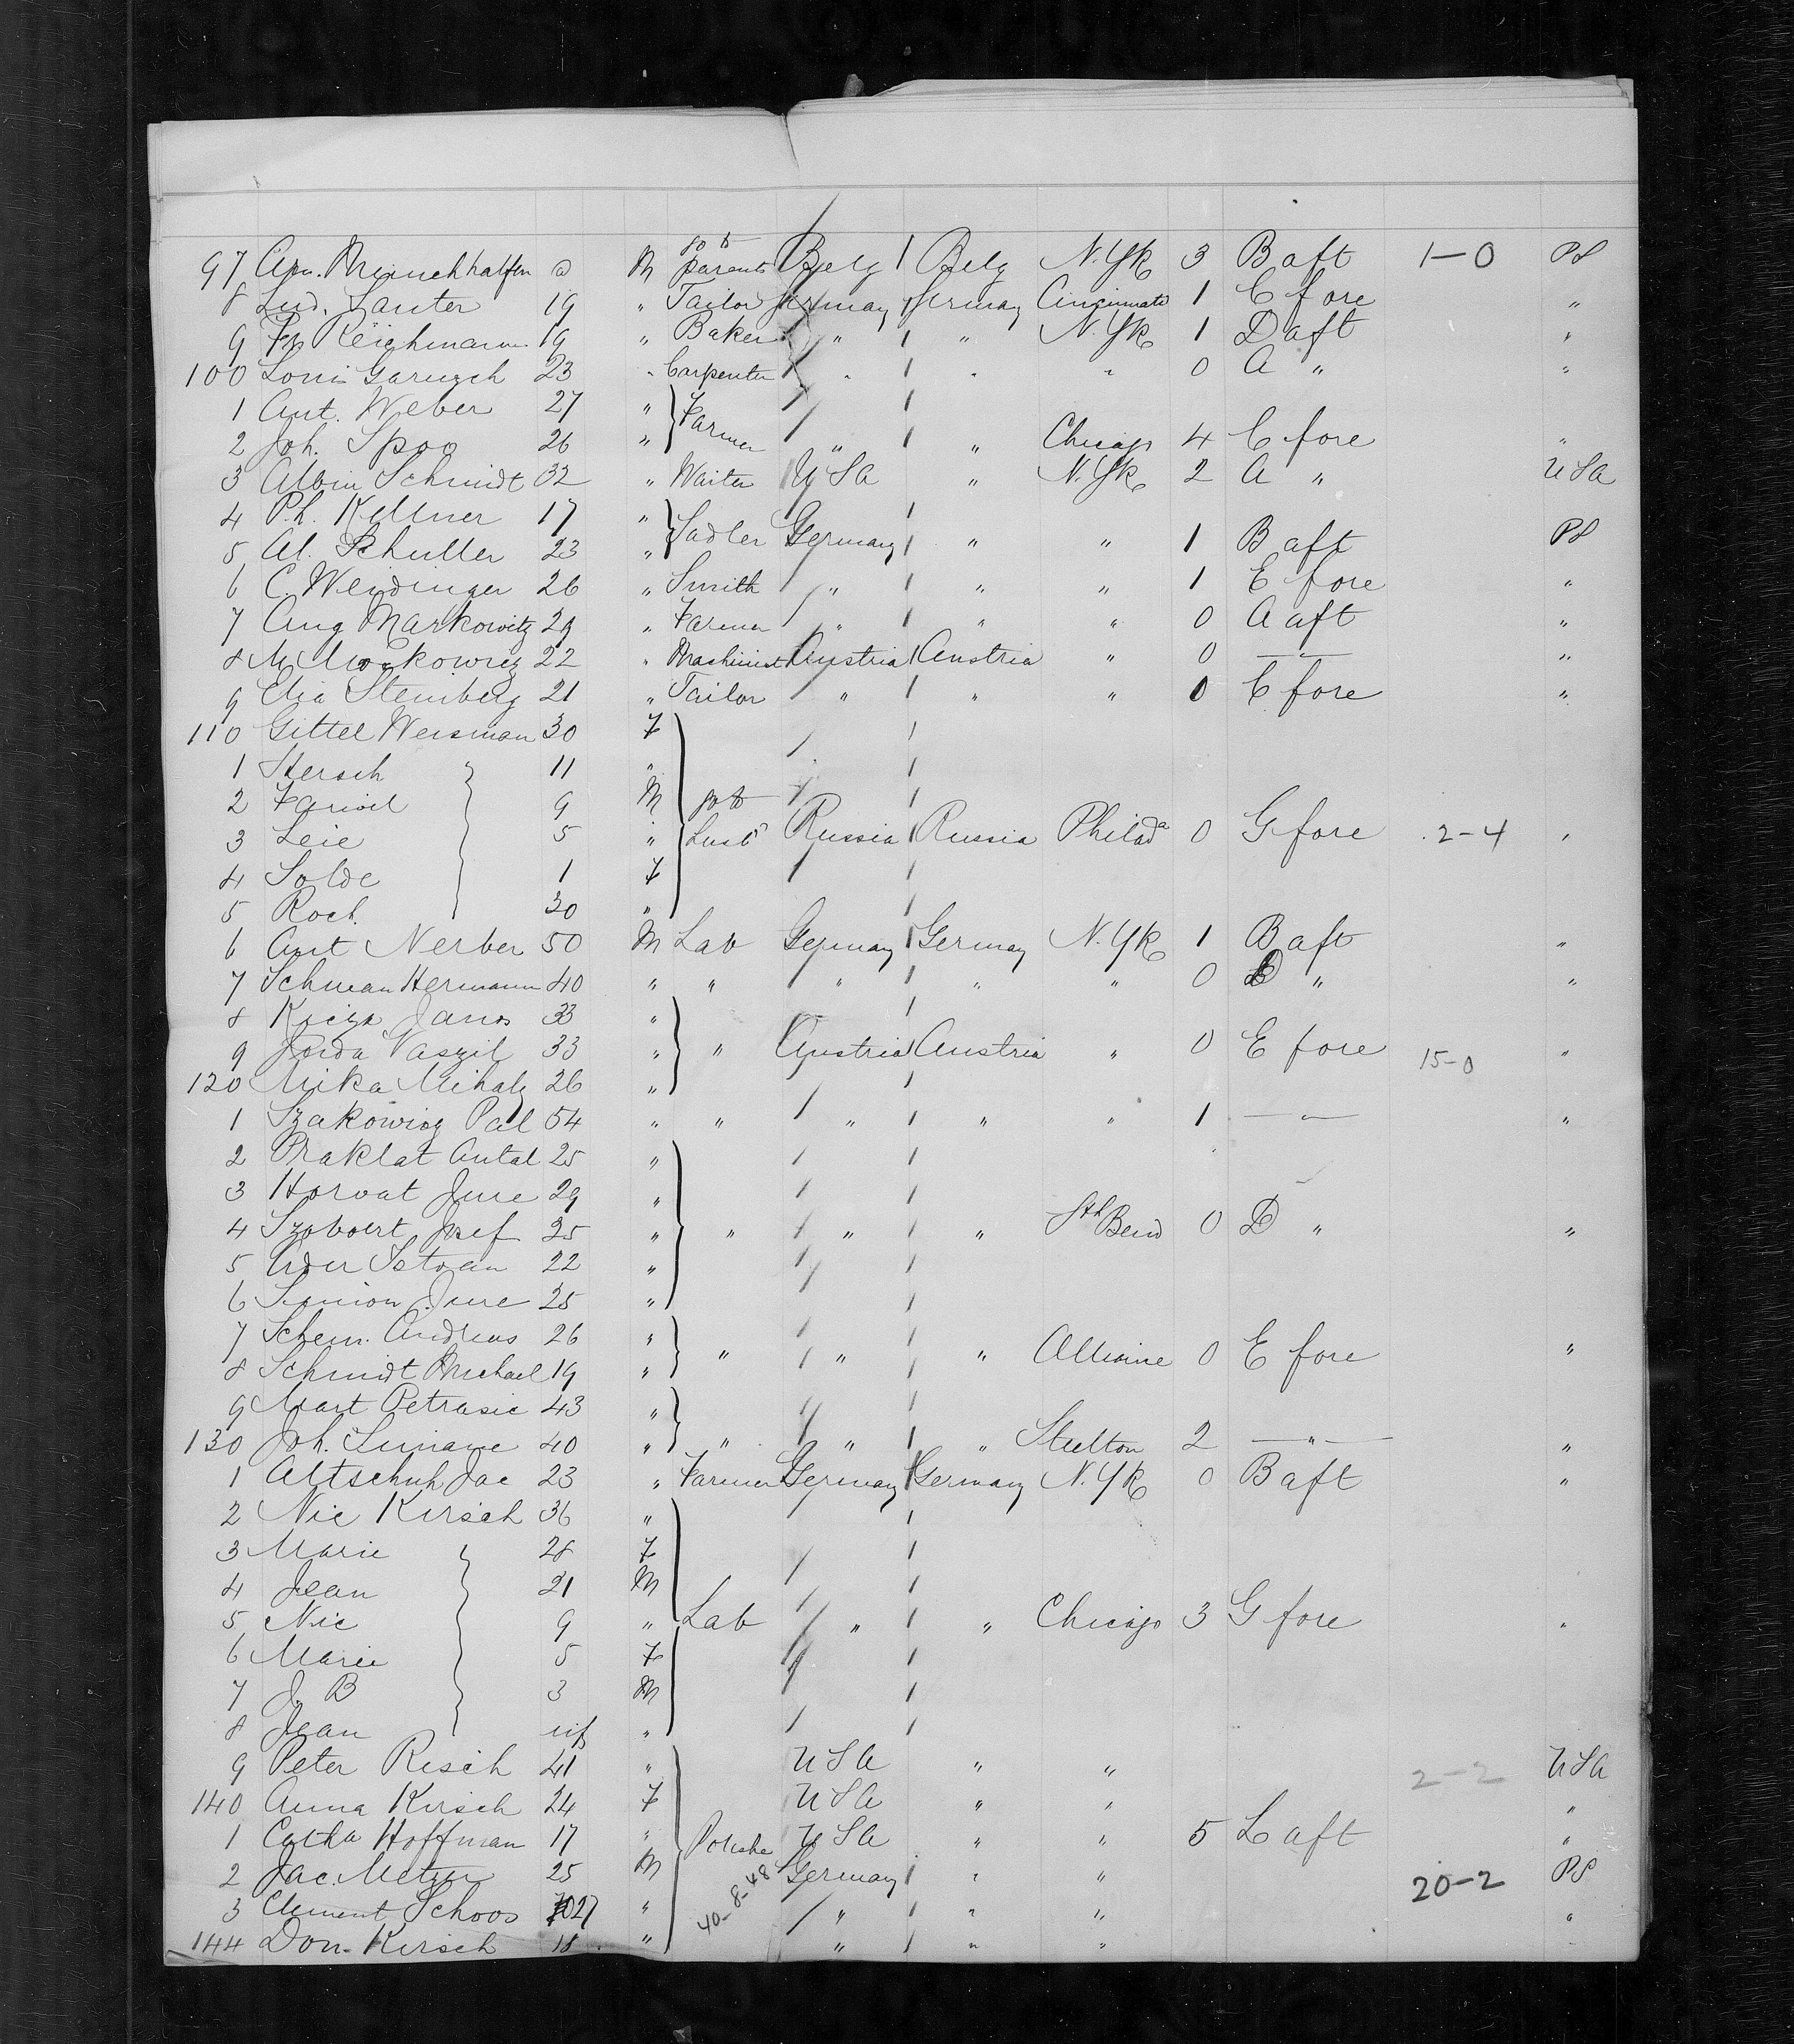 97 Apn. Munchhalfen 0 M go to parents Belg Belg N.Yk 3 B aft 1-0 PS
8 Lud. Lauter 19 " Tailor Germany Germany Cincinnati 1 C fore "
9 Fr Reichmann 19 " Baker " " N.Yk 1 D aft "
100 Loui Garusch 23 " Carpenter " " " 0 A " "
1 Ant. Weber 27 "
2 Joh. Spoo 26 " Farmer " " Chicago 4 C fore "
3 Albin Schmidt 32 " Waiter USA " N.Yk 2 A " USA
4 Ph. Kellner 17 "
5 Al. Schuller 23 " Sadler Germany " " 1 B aft PS
6 C Weidinger 26 " Smith " " " 1 E fore "
7 Aug Markowitz 29 " Farmer " " " 0 A aft "
8 M Moskowicz 22 " Machinist Austria Austria " 0 " "
9 Elia Steinberg 21 " Tailor " " " 0 C fore "
110 Gittel Weisman 30 F
1 Hersch 11 "
2 Faiwel 9 M go to
3 Leie 5 " Husb Russia Russia Philad 0 G fore 2-4 "
4 Solde 1 F
5 Roch. 30 "
6 Ant Nerber 50 M Lab Germany Germany N.Yk 1 B aft "
7 Schuman Hermann 40 " " " " " 0 D " "
8 Janos 33 "
9 Vaszil 33 " " Austria Austria " 0 E fore 15-0 "
120 Mika Mihaly 26 "
1 Szakowicz Pal 54 " " " " " 1 " "
2 Praklat Antal 25 "
3 Horvat Jure 29 "
4 Josef 25 " " " " Sth Bend 0 D " "
5 Istvan 22 "
6 Simion Jure 25 "
7 Schem. Andreas 26 "
8 Schmidt Michael 19 " " " " Alliance 0 E fore "
9 Mart Petrasic 43 "
130 Joh. 40 " " " " Steelton 2 " "
1 Altschuh Jac 23 " Farmer Germany Germany N.Yk 0 B aft "
2 Nic Kirsch 36 "
3 Marie 28 F
4 Jean 21 M
5 Nic 9 " Lab " " Chicago 3 G fore "
6 Marie 5 F
7 J B 3 M
8 Jean inf "
9 Peter Resch 41 " USA " " 2-2 USA
140 Anna Kirsch 24 F USA " " "
1 Catha Hoffman 17 " USA " " 5 L aft "
2 Jac. Metzn 25 M Germany " " 20-2 PS
3 Clement Schoos 27 " 40-8-48 " " " "
144 Dom. Kirsch 18 " " " " "